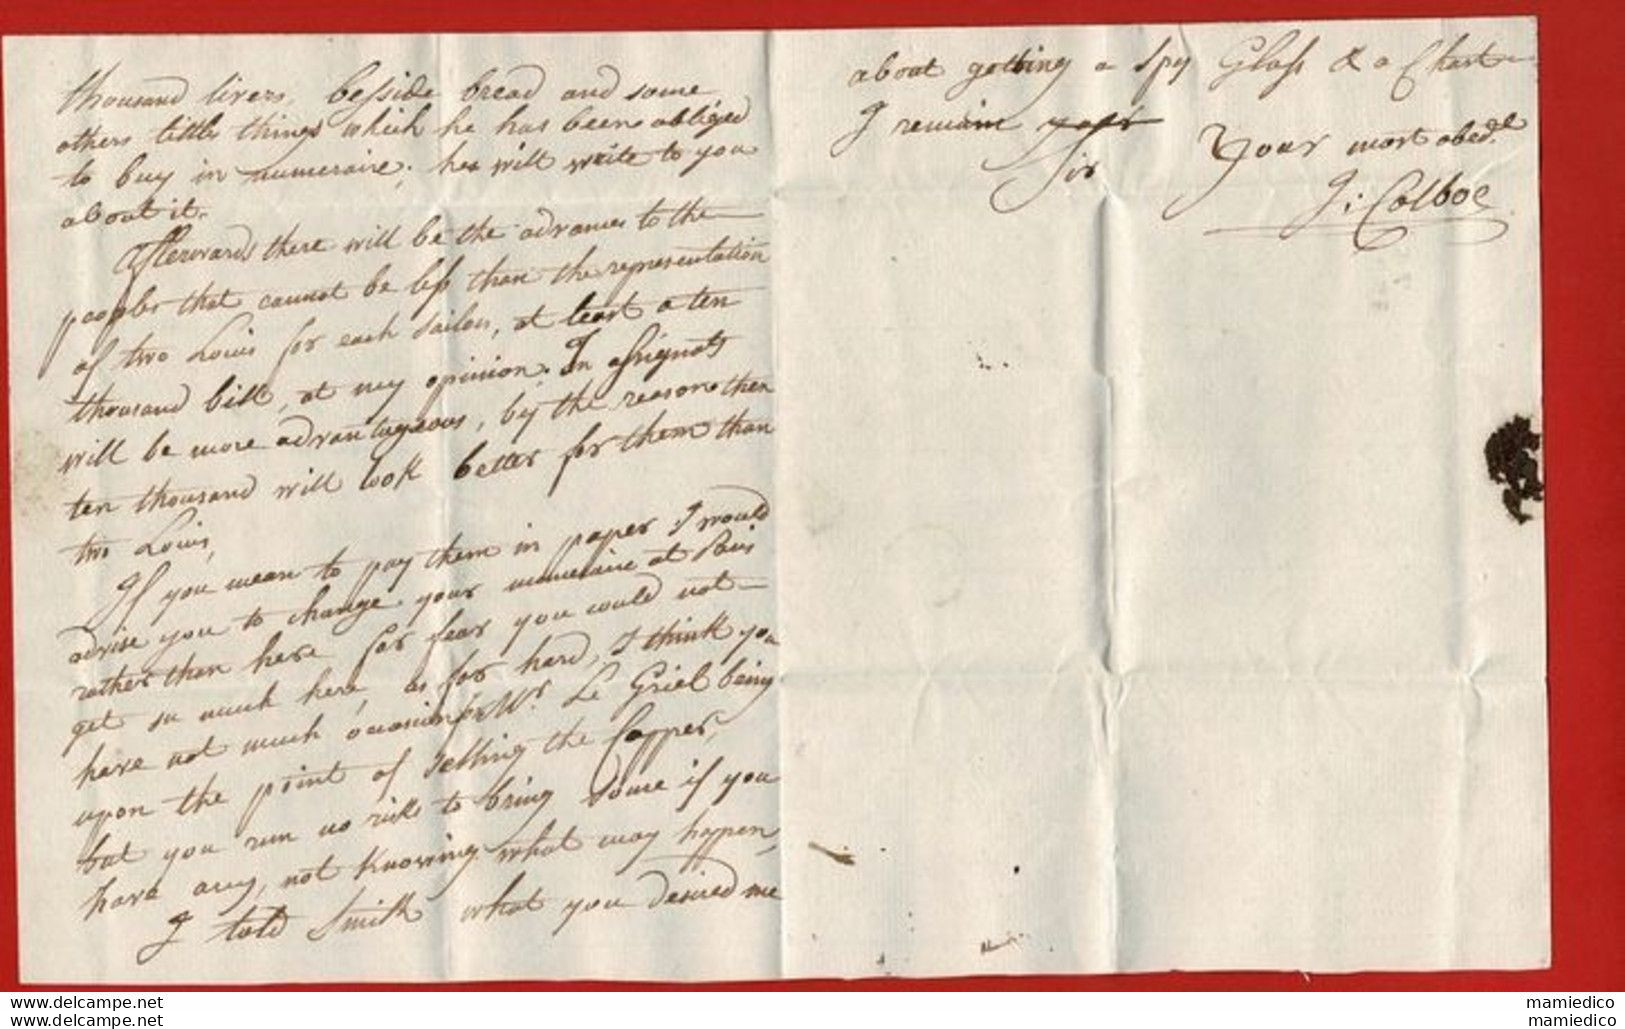 thousand livers, besside bread and some
others little things which he has been obliged
to buy in numeraire; he will write to you
about it.
Afterwards there will be the advances to the
peoples that cannot be less than the representation
of two Louis for each sailor, at least a ten
thousand bill, at my opinion. In assignats
will be more advantageous, by the reason then
ten thousand will look better for them than
two Louis,
If you mean to pay them in paper I would
advise you to change your numeraire at Paris
rather than here for fear you would not
get so much here, as for hard, I think you
have not much occasion for Mr. Le Griel being
upon the point of selling the Copper,
but you run no risk to bring some if you
have any, not knowing what may happen,
I told Smith what you desired me
about getting a Spy Glass & a Chart
I remain your
Sir
Your most obed.t
J: Colboe
www.delcampe.net
www.delcampe.net
mamiedico
mamiedico